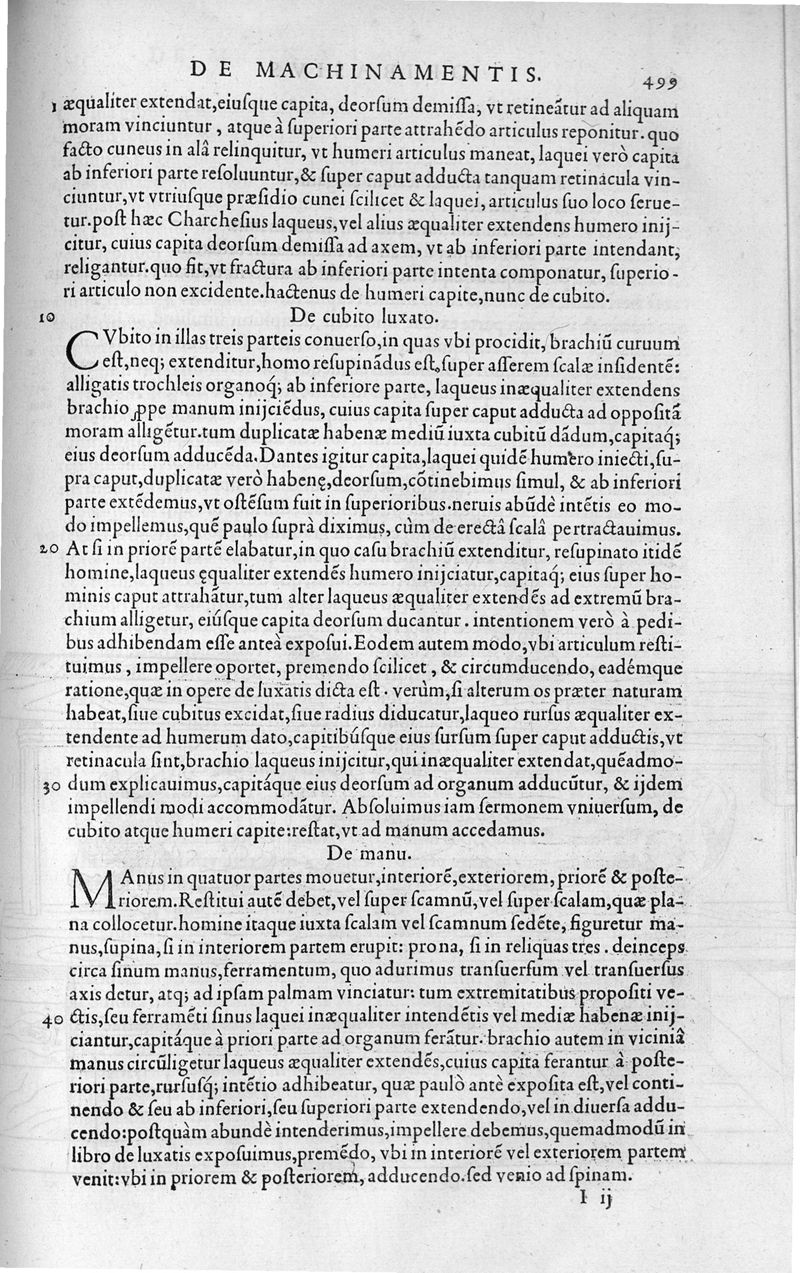 DE MACHINAMENTIS. 499
1 æqualiter extendat,eiuſque capita, deorſum demiſſa, vt retineãtur ad aliquam
moram vinciuntur, atque à ſuperiori parte attrahẽdo articulus reponitur. quo
facto cuneus in alâ relinquitur, vt humeri articulus maneat, laquei verò capita
ab inferiori parte reſoluuntur,& ſuper caput adducta tanquam retinacula vin-
ciuntur,vt vtriuſque præſidio cunei ſcilicet & laquei, articulus ſuo loco ſerue-
tur.poſt hæc Charcheſius laqueus,vel alius æqualiter extendens humero inij-
citur, cuius capita deorſum demiſſa ad axem, vt ab inferiori parte intendant,
religantur.quo fit,vt fractura ab inferiori parte intenta componatur, ſuperio-
ri articulo non excidente.hactenus de humeri capite,nunc de cubito.
10 De cubito luxato.
CVbito in illas treis parteis conuerſo,in quas vbi procidit, brachiũ curuum
eſt,neq; extenditur,homo reſupinãdus eſt,ſuper aſſerem ſcalæ inſidentẽ:
alligatis trochleis organoq́; ab inferiore parte, laqueus inæqualiter extendens
brachio ꝓppe manum inijciẽdus, cuius capita ſuper caput adducta ad oppoſitã
moram alligẽtur.tum duplicatæ habenæ mediũ iuxta cubitũ dãdum,capitaq́;
eius deorſum adducẽda.Dantes igitur capita,laquei quidẽ humero iniecti,ſu-
pra caput,duplicatæ verò habenę,deorſum,cõtinebimus ſimul, & ab inferiori
parte extẽdemus,vt oſtẽſum fuit in ſuperioribus.neruis abũdè intẽtis eo mo-
do impellemus,quẽ paulo ſuprà diximus, cùm de erectâ ſcalâ pertractauimus.
20 At ſi in priorẽ partẽ elabatur,in quo caſu brachiũ extenditur, reſupinato itidẽ
homine,laqueus ęqualiter extendẽs humero inijciatur,capitaq́; eius ſuper ho-
minis caput attrahãtur,tum alter laqueus æqualiter extendẽs ad extremũ bra-
chium alligetur, eiúſque capita deorſum ducantur. intentionem verò à pedi-
bus adhibendam eſſe anteà expoſui.Eodem autem modo,vbi articulum reſti-
tuimus, impellere oportet, premendo ſcilicet, & circumducendo, eadémque
ratione,quæ in opere de luxatis dicta eſt. verùm,ſi alterum os præter naturam
habeat,ſiue cubitus excidat,ſiue radius diducatur,laqueo rurſus æqualiter ex-
tendente ad humerum dato,capitibúſque eius ſurſum ſuper caput adductis,vt
retinacula ſint,brachio laqueus inijcitur,qui inæqualiter extendat,quẽadmo-
30 dum explicauimus,capitáque eius deorſum ad organum adducũtur, & ijdem
impellendi modi accommodãtur. Abſoluimus iam ſermonem vniuerſum, de
cubito atque humeri capite:reſtat,vt ad manum accedamus.
De manu.
MAnus in quatuor partes mouetur,interiorẽ,exteriorem,priorẽ & poſte-
riorem.Reſtitui autẽ debet,vel ſuper ſcamnũ,vel ſuper ſcalam,quæ pla-
na collocetur.homine itaque iuxta ſcalam vel ſcamnum ſedẽte, figuretur ma-
nus,ſupina,ſi in interiorem partem erupit: prona, ſi in reliquas tres. deinceps
circa ſinum manus,ferramentum, quo adurimus tranſuerſum vel tranſuerſus
axis detur, atq; ad ipſam palmam vinciatur: tum extremitatibus propoſiti ve-
40 ctis,ſeu ferramẽti ſinus laquei inæqualiter intendẽtis vel mediæ habenæ inij-
ciantur,capitáque à priori parte ad organum ferãtur. brachio autem in viciniâ
manus circũligetur laqueus æqualiter extendẽs,cuius capita ferantur à poſte-
riori parte,rurſuſq́; intẽtio adhibeatur, quæ paulò antè expoſita eſt,vel conti-
nendo & ſeu ab inferiori,ſeu ſuperiori parte extendendo,vel in diuerſa addu-
cendo:poſtquàm abundè intenderimus,impellere debemus,quemadmodũ in
libro de luxatis expoſuimus,premẽdo, vbi in interiorẽ vel exteriorem partem
venit:vbi in priorem & poſteriorem, adducendo.ſed venio ad ſpinam.
I ij